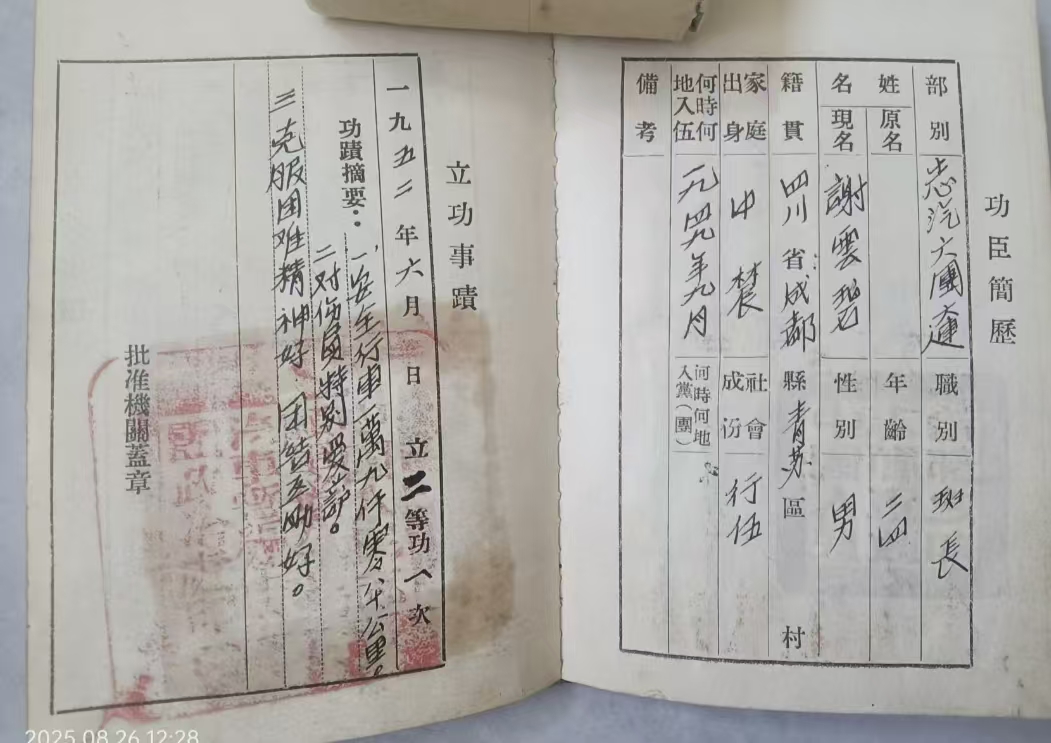 功臣簡歷
部別 志汽六團 連 職別 班長
姓名 原名 年齡 二四
現名 謝雲 性別 男
籍貫 四川省成都縣青苏區 村
家庭出身 中農 社會成份 行伍
何時何地入伍 一九四九年九月 何時何地入黨(團)
備考
立功事蹟
一九五二年六月 日 立二等功一次
功蹟摘要：一、安全行車一萬九仟零 公里。
二对伤員特别爱护。
三克服困难精神好 团结互助好。
批准機關蓋章
2025.08.26 12:28